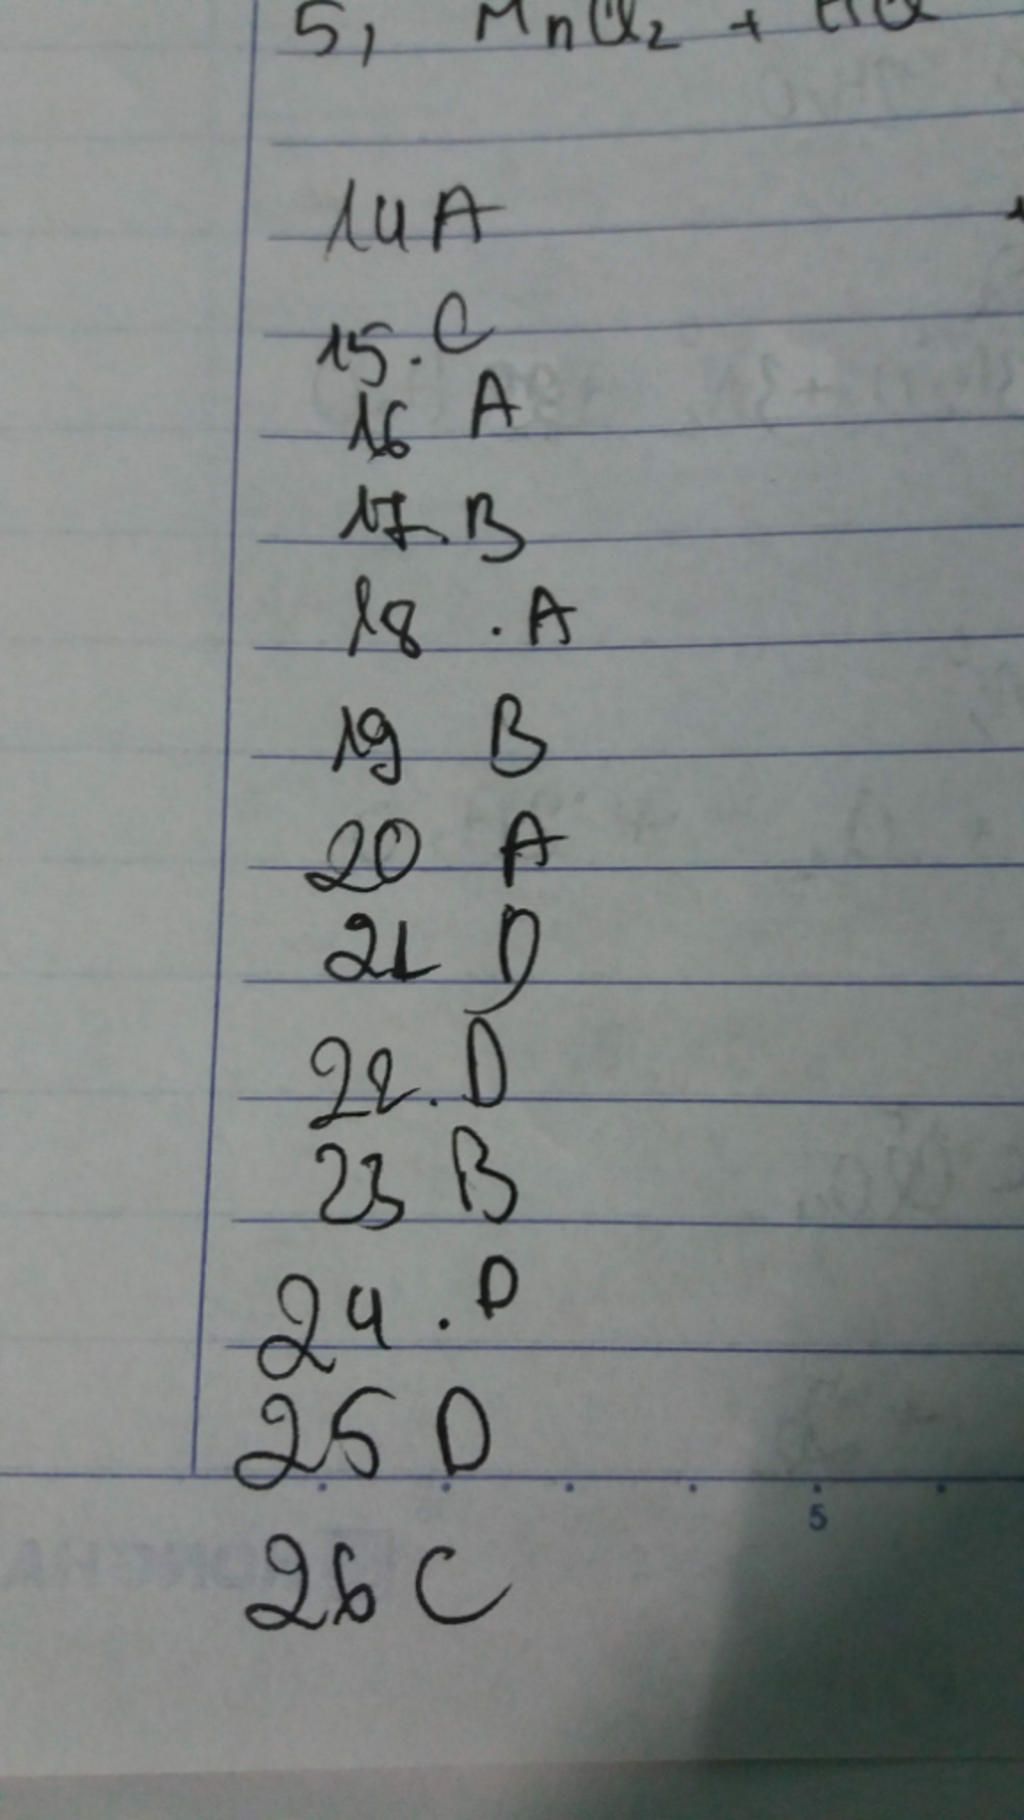 5, MnCl₂ +
14 A
15. C
16 A
17. B
18 . A
19 B
20 A
21 D
22. D
23 B
24 . D
25 D
5
26 C